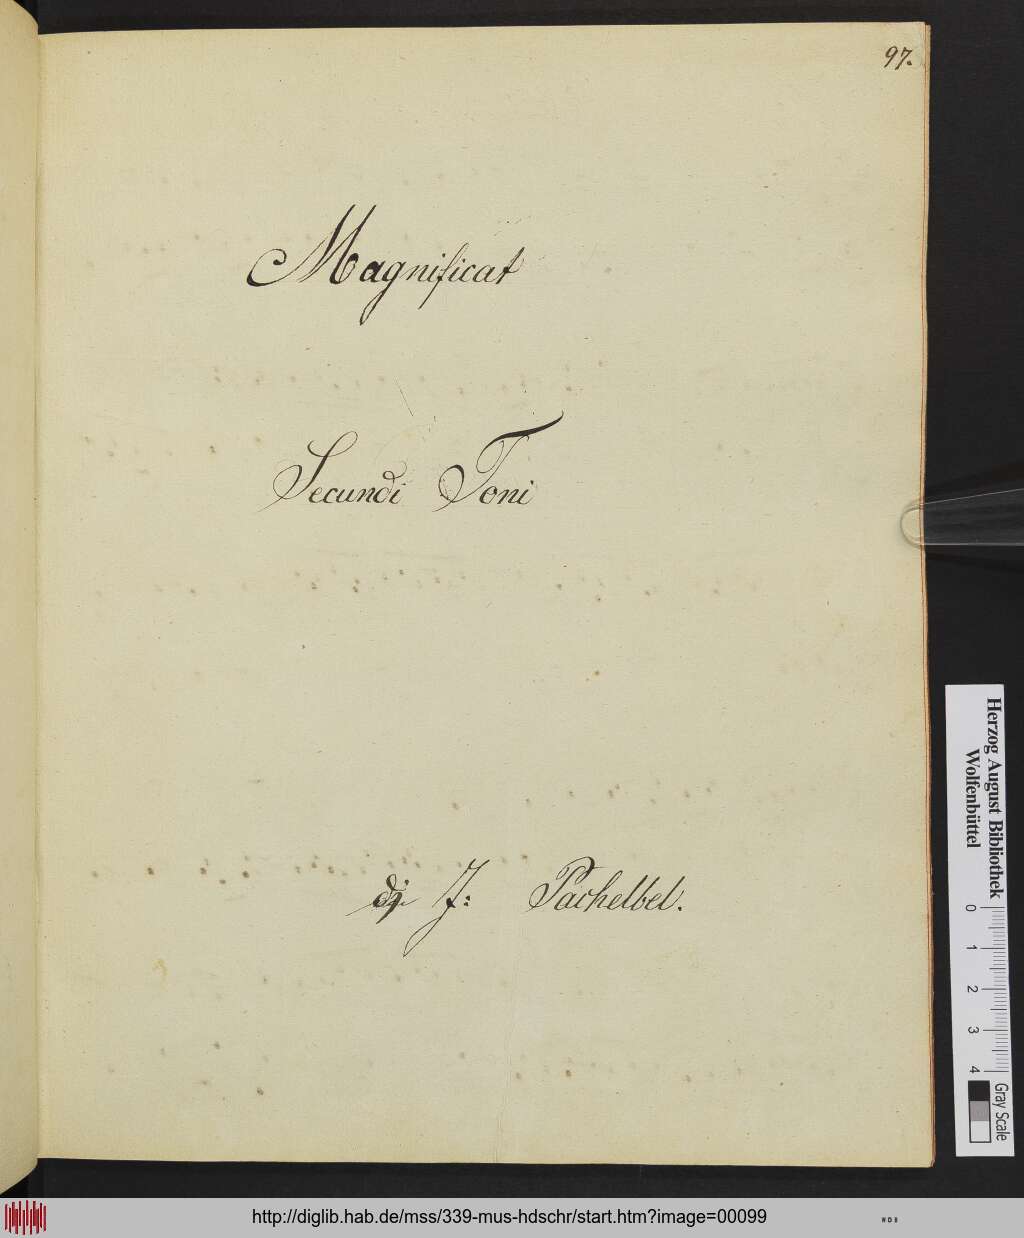 97.
Magnificat
Secundi Toni
di J: Pachelbel.
Herzog August Bibliothek
Wolfenbüttel
0 1 2 3 4
Gray Scale
http://diglib.hab.de/mss/339-mus-hdschr/start.htm?image=00099